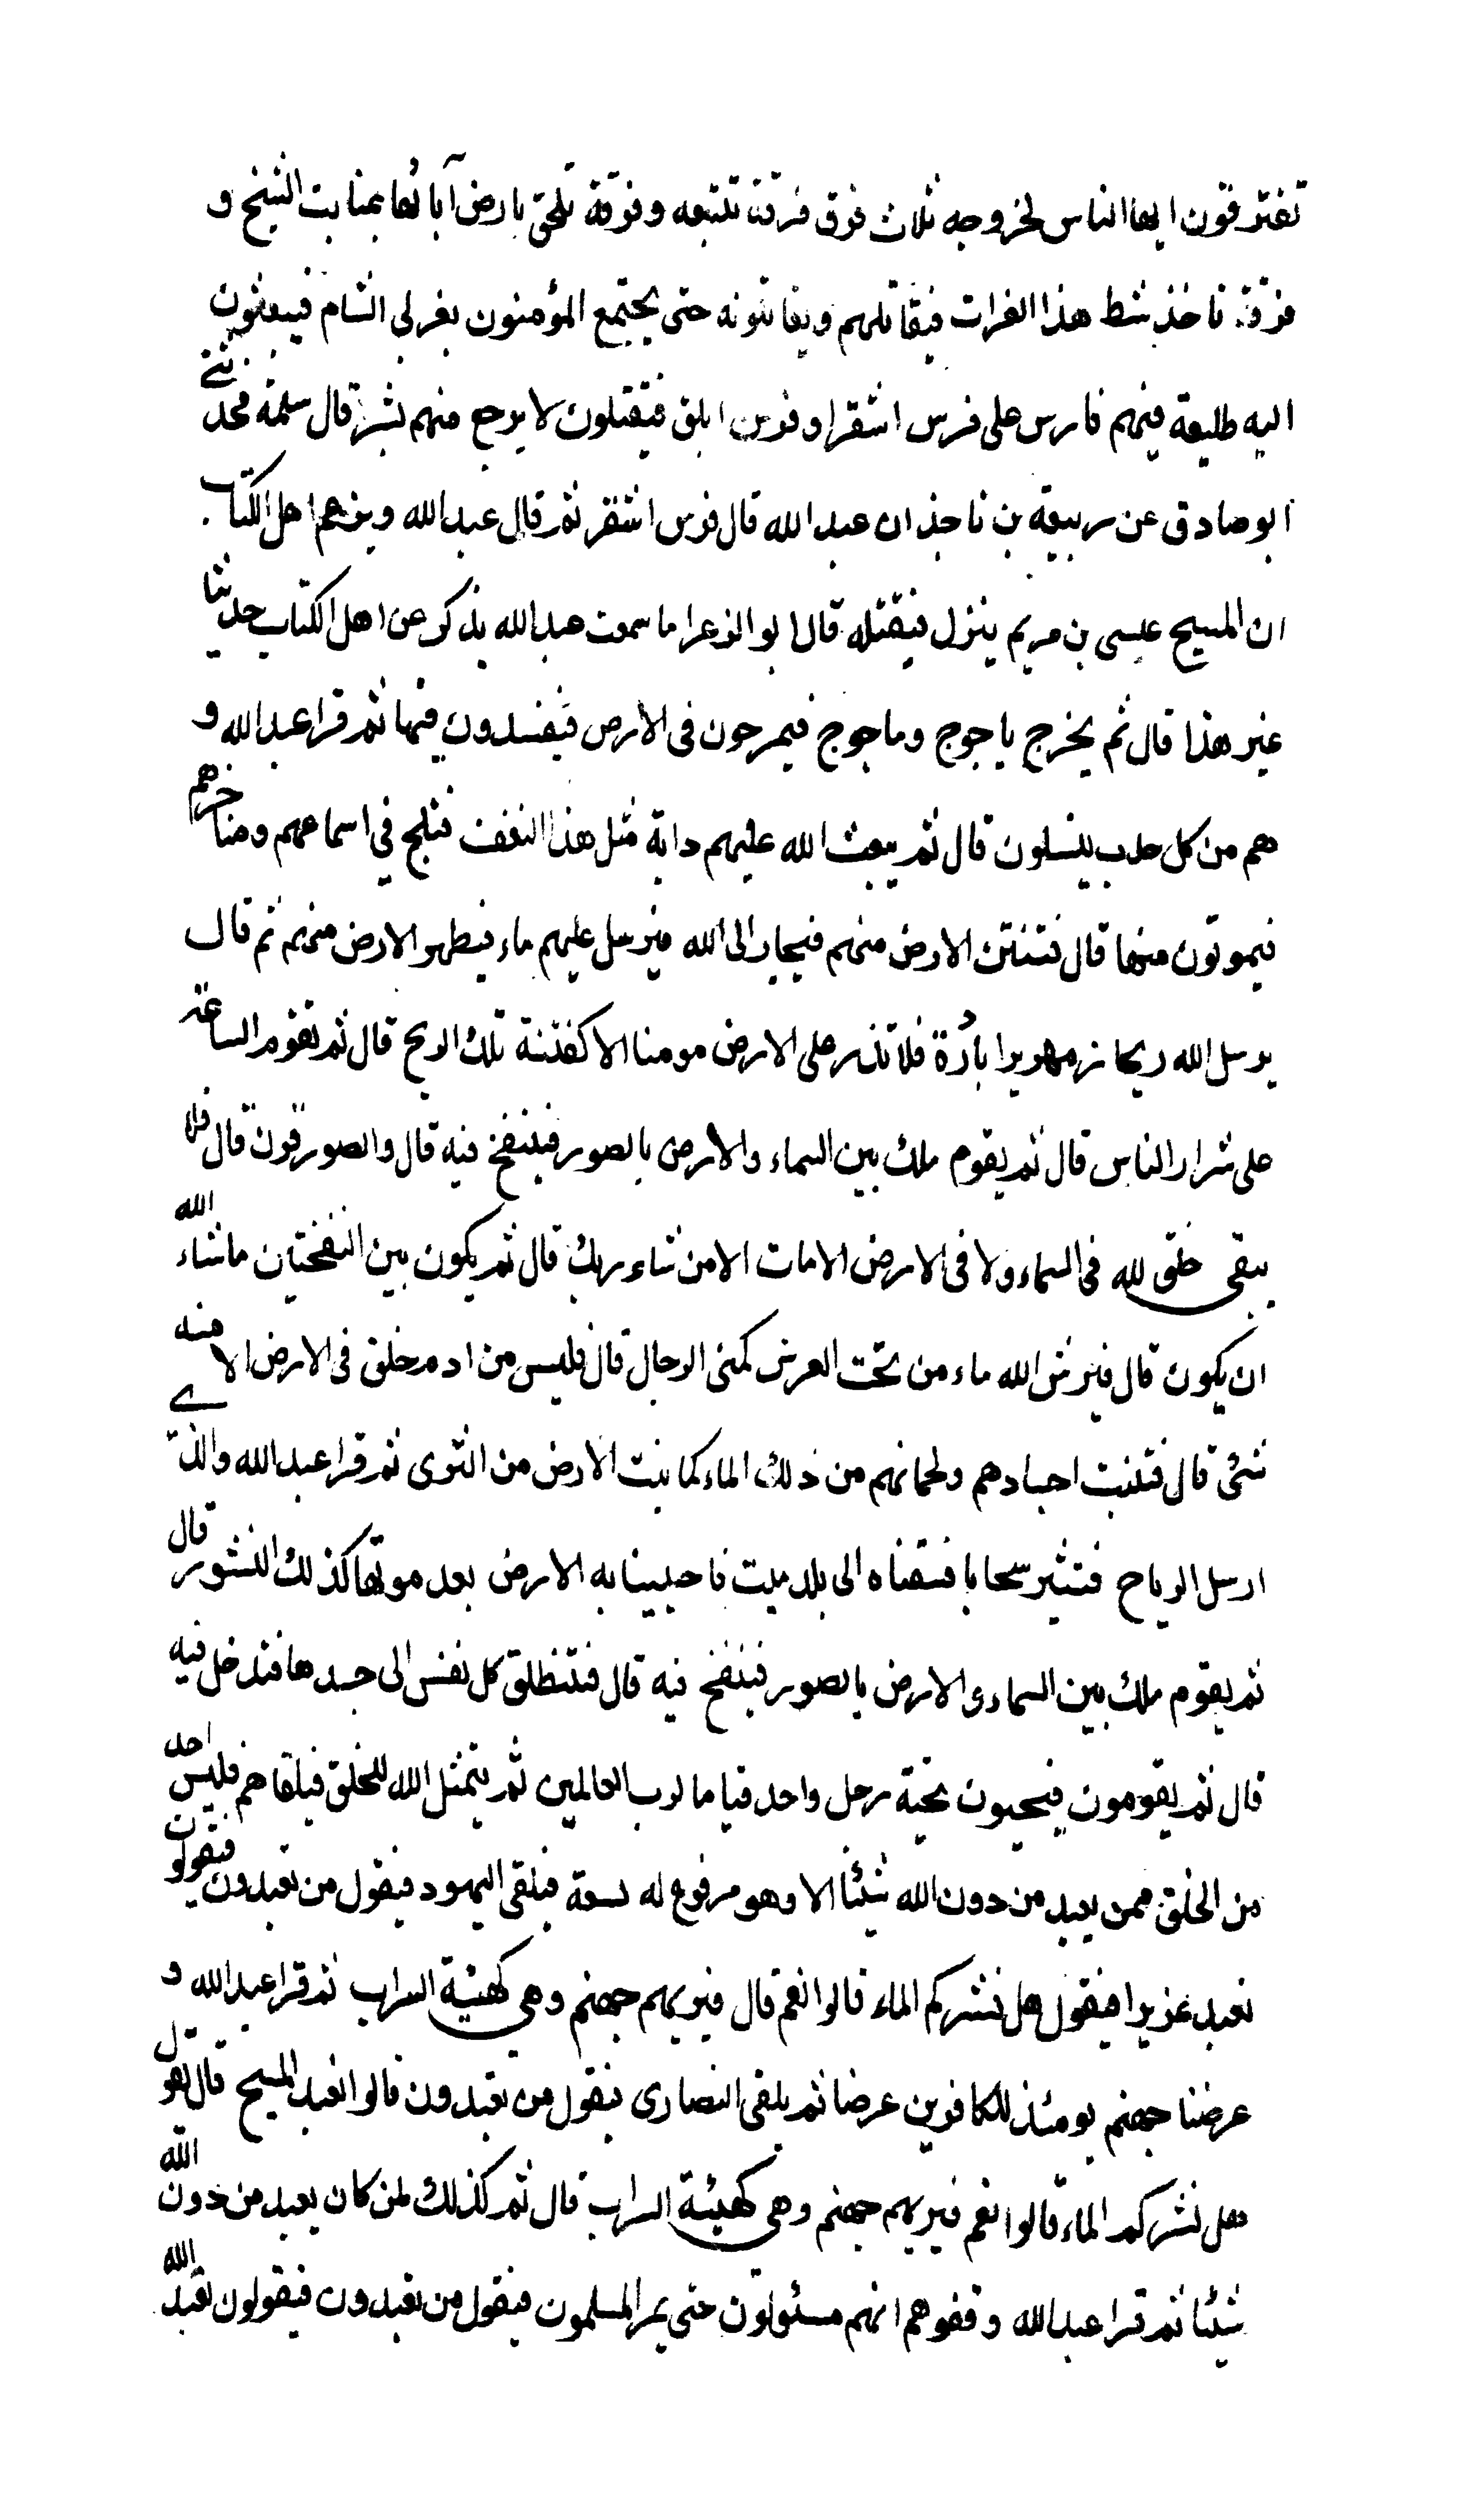 تفترقون ايها الناس لخروجه ثلاث فرق فرقة تتبعه وفرقة تلحق بارض آبائها بمنابت الشيح و
فرقة تاخذ شط هذا الفرات فيقاتلهم ويقاتلونه حتى يجتمع المؤمنون بغربى الشام فيبعثون
اليه طليعة فيهم فارس على فرس اشقر او فرس ابلق فيقتلون لا يرجع منهم بشر قال سلمة فحدثنى
ابو صادق عن ربيعة بن ناجذ ان عبد الله قال فرس اشقر ثم قال عبد الله ويزعم اهل الكتاب
ان المسيح عيسى بن مريم ينزل فيقتله قال ابو الزعرا ما سمعت عبد الله يذكر عن اهل الكتاب حديثا
غير هذا قال ثم يخرج ياجوج وماجوج فيمرحون فى الارض فيفسدون فيها ثم قرا عبد الله و
هم من كل حدب ينسلون قال ثم يبعث الله عليهم دابة مثل هذا النغف فتلج في اسماعهم ومناخرهم
فيموتون منها قال فتنتن الارض منهم فيجار الى الله فيرسل عليهم ماء فيطهر الارض منهم ثم قال
يرسل الله ريحا زمهريرا باردة فلا تذر على الارض مومنا الا كفتنة تلك الريح قال ثم تقوم الساعة
على شرار الناس قال ثم يقوم ملك بين السماء والارض بالصور فينفخ فيه قال والصور قرن قال فلا
يبقى خلق لله فى السماء ولا فى الارض الا مات الا من شاء ربك قال ثم يكون بين النفختين ما شاء الله
ان يكون قال فيرش الله ماء من تحت العرش كمنى الرجال قال فليس من ادم خلق فى الارض الا منه
شئ قال فتنبت اجسادهم ولحمانهم من ذلك الماء كما ينبت الارض من الثرى ثم قرا عبد الله والذي
ارسل الرياح فتثير سحابا فسقناه الى بلد ميت فاحيينا به الارض بعد موتها كذلك النشور قال
ثم يقوم ملك بين السماء و الارض بالصور فينفخ فيه قال فتنطلق كل نفس الى جسدها فتدخل فيه
قال ثم يقومون فيحيون تحية رجل واحد قياما لرب العالمين ثم يتمثل الله للخلق فيلقاهم فليس احد
من الخلق ممن يعبد من دون الله شيئا الا وهو مرفوع له يتبعه فيلقى اليهود فيقول من تعبدون فيقولون
نعبد عزيرا فيقول هل نشركم الماء قالوا نعم قال فيريهم جهنم وهي كهيئة السراب ثم قرا عبد الله و
عرضنا جهنم يومئذ للكافرين عرضا ثم يلقى النصارى فيقول من تعبدون قالوا نعبد المسيح قال يقول
هل نشركم الماء قالوا نعم فيريهم جهنم وهي كهيئة السراب قال ثم كذلك لمن كان يعبد من دون الله
شيئا ثم قرا عبد الله وقفوهم انهم مسئولون حتى يمر المسلمون فيقول من تعبدون فيقولون نعبد الله